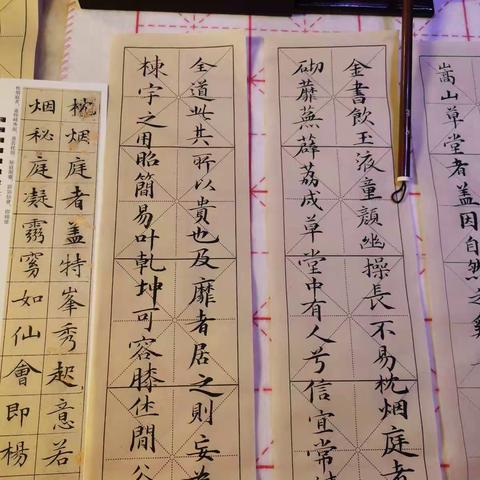 嵩山草堂者蓋因自然之
金書飲玉液童顏幽操長不易枕烟庭者
砌蘼蕪薜荔成草堂中有人兮信宜常
全道此其所以貴也及靡者居之則妄
棟宇之用昭簡易叶乾坤可容膝休閒谷
枕烟庭者蓋特峯秀起意若
烟秘庭凝靄窅如仙會即楊